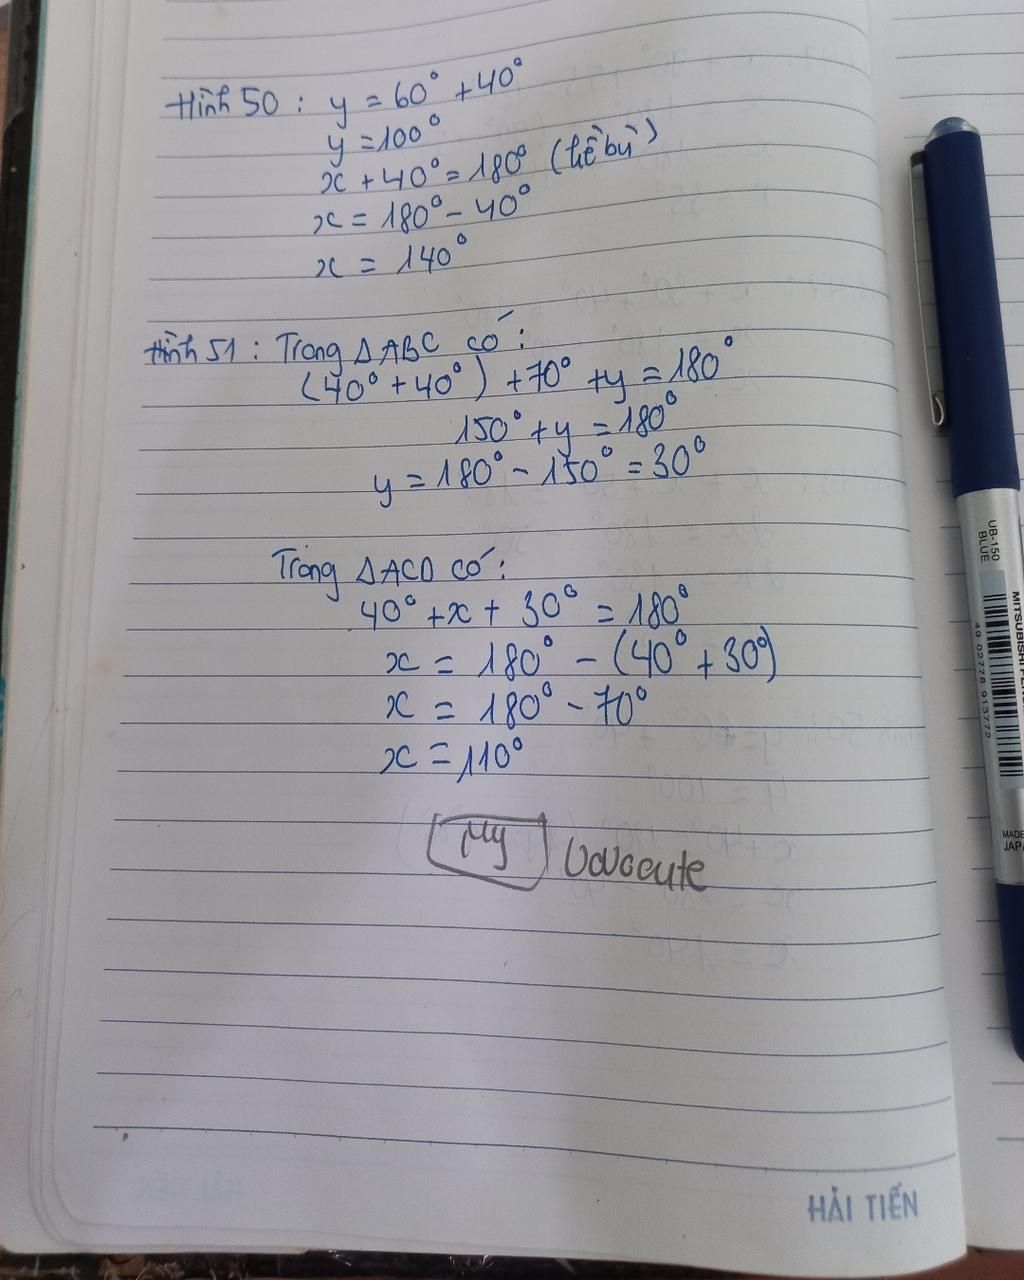 Hình 50 : y = 60° + 40°
y = 100°
x + 40° = 180° (kề bù)
x = 180° - 40°
x = 140°
Hình 51 : Trong ΔABC có :
(40° + 40°) + 70° + y = 180°
150° + y = 180°
y = 180° - 150° = 30°
Trong ΔACD có :
40° + x + 30° = 180°
x = 180° - (40° + 30°)
x = 180° - 70°
x = 110°
My
HẢI TIẾN
UB-150
BLUE
MITSUBISHI PENCIL
49 02778 913772
MADE
JAPA